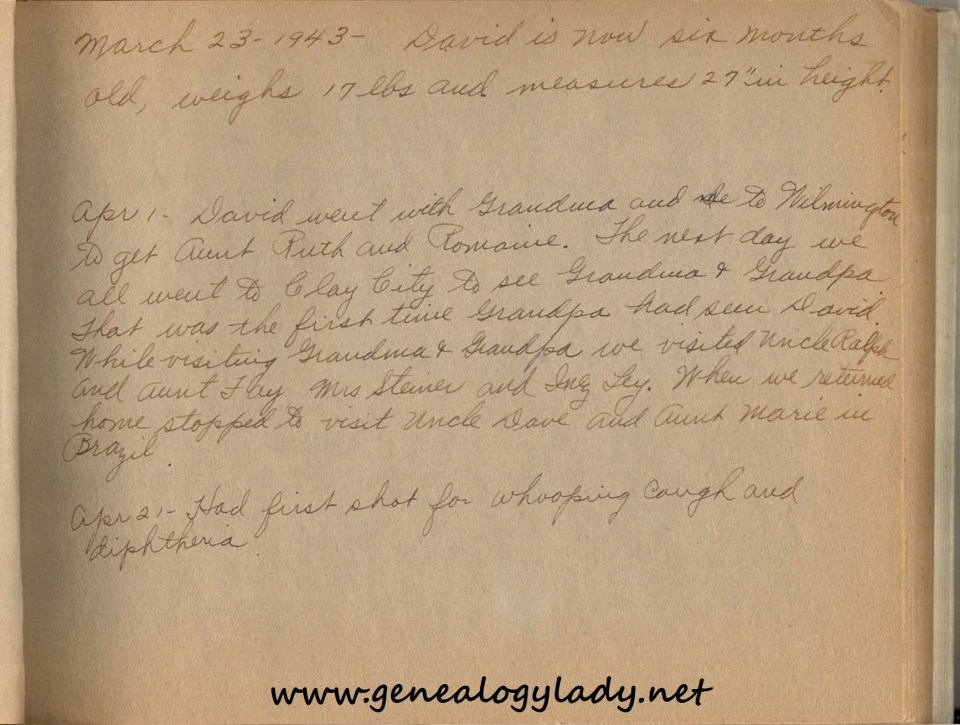 March 23 - 1943 - David is now six months
old, weighs 17 lbs and measures 27" in height.
Apr 1 - David went with Grandma and me to Wilmington
to get Aunt Ruth and Romaine. The next day we
all went to Clay City to see Grandma & Grandpa.
That was the first time Grandpa had seen David.
While visiting Grandma & Grandpa we visited Uncle Ralph
and Aunt Flay Mrs Steiner and Inez Ley. When we returned
home stopped to visit Uncle Dave and Aunt Marie in
Brazil.
Apr 21 - Had first shot for whooping cough and
diphtheria.
www.genealogylady.net